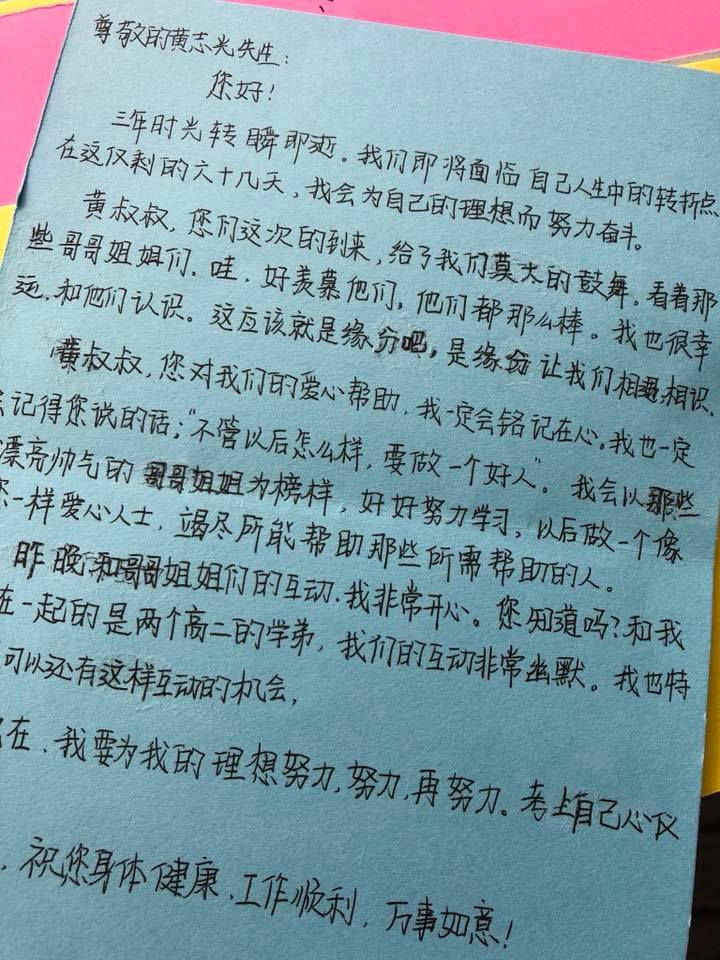 尊敬的黄志光先生：
您好！
三年时光转瞬即逝。我们即将面临自己人生中的转折点
在这仅剩的六十几天，我会为自己的理想而努力奋斗。
黄叔叔，您们这次的到来，给了我们莫大的鼓舞。看着那
些哥哥姐姐们，哇，好羡慕他们，他们都那么棒。我也很幸
运，和他们认识。这应该就是缘分吧，是缘份让我们相遇，相识，
黄叔叔，您对我们的爱心帮助，我一定会铭记在心。我也一定
记得您说的话；“不管以后怎么样，要做一个好人”。我会以那些
漂亮帅气的哥哥姐姐为榜样，好好努力学习，以后做一个像
您一样爱心人士，竭尽所能帮助那些所需帮助的人。
昨晚和哥哥姐姐们的互动，我非常开心。您知道吗？和我
在一起的是两个高二的学弟，我们的互动非常幽默。我也特
可以还有这样互动的机会，
在，我要为我的理想努力，努力，再努力。考上自己心仪
，祝您身体健康，工作顺利，万事如意！